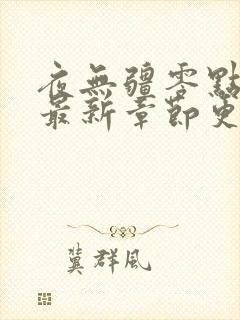 夜無疆零點
最新章節更
龔群風